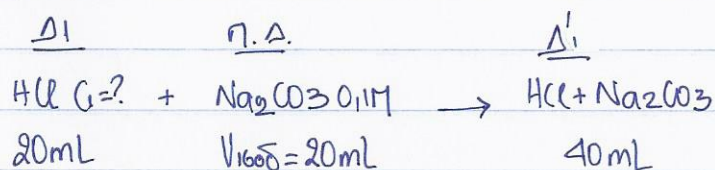 Δ1 Π.Δ. Δ'1
HCl C1=? + Na2CO3 0,1M → HCl + Na2CO3
20mL Vισοδ = 20mL 40mL